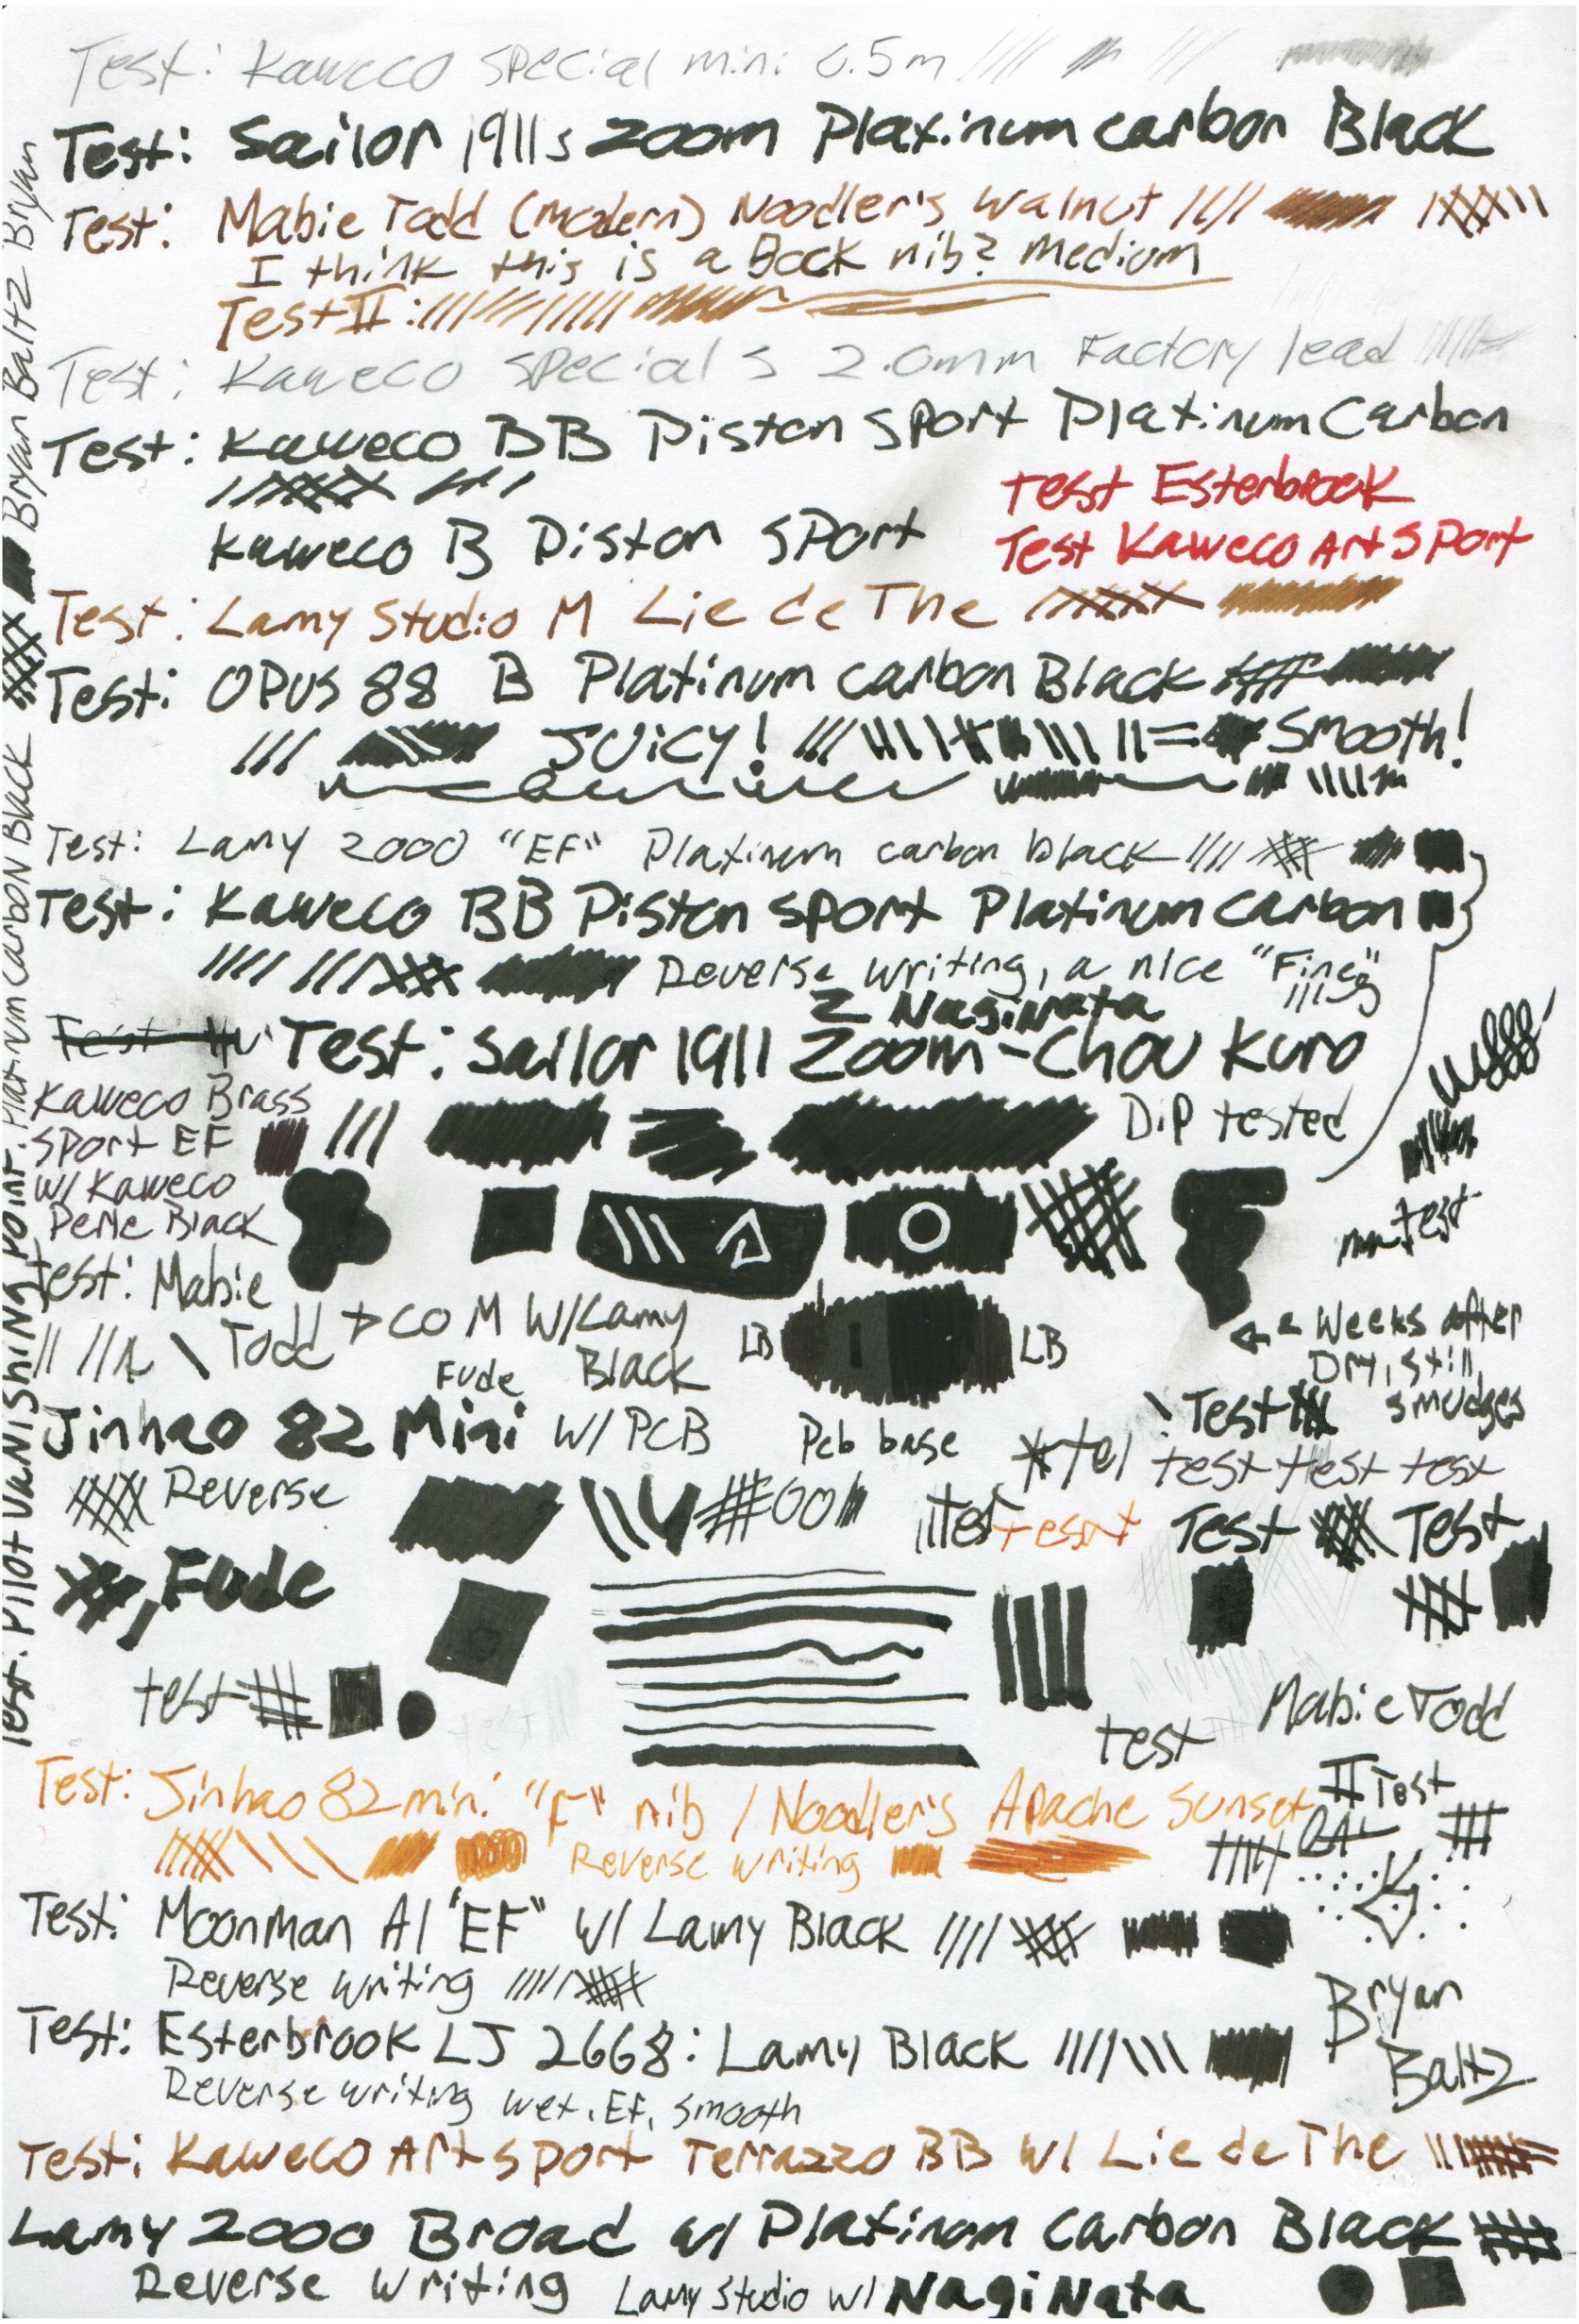 Test: Kaweco Special mini 0.5m
Test: Sailor 1911s Zoom Platinum carbon Black
Test: Mabie Todd (modern) Noodler's Walnut
I think this is a Bock nib? medium
Test II:
Test: Kaweco Special S 2.0mm Factory lead
Test: Kaweco BB Piston Sport Platinum Carbon
Test Esterbrook
Kaweco B Piston Sport
Test Kaweco Art Sport
Test: Lamy Studio M Lie de The
Test: Opus 88 B Platinum carbon Black
JUiCY! Smooth!
Test: Lamy 2000 "EF" Platinum carbon black
Test: Kaweco BB Piston Sport Platinum Carbon
Reverse writing, a nice "Fine"
Naginata
Test
Test: Sailor 1911 Zoom - Chou Kuro
Kaweco Brass
Sport EF
w/ Kaweco
Perle Black
Dip tested
test
Test: Mabie
Todd + co M w/ Lamy
Black
LB
LB
Pcb base
Weeks after
Dry, still
smudges
Fude
Jinhao 82 Mini w/ PCB
Test
Reverse
test test test
Tesat
Test
Test
Fude
test
test
test
Mabie Todd
II Test
Test: Jinhao 82 mini "F" nib / Noodler's Apache Sunset
Reverse writing
Test: Moonman A1 "EF" w/ Lamy Black
Reverse writing
Bryan
Baltz
Test: Esterbrook LJ 2668: Lamy Black
Reverse writing wet, EF, smooth
Test: Kaweco Art sport Terrazzo BB w/ Lie de The
Lamy 2000 Broad w/ Platinum Carbon Black
Reverse writing
Lamy Studio w/ Naginata
Test: Pilot Vanishing Point: Platinum Carbon Black Bryan Baltz Bryan